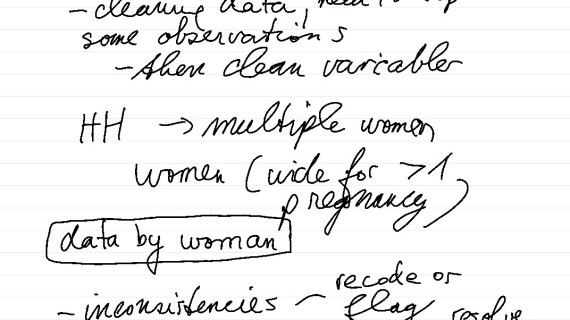 - cleaning data, need to
some observations
- then clean variables
HH → multiple women
women (wide for >1
pregnancy)
data by woman
- inconsistencies - recode or
flag resolve